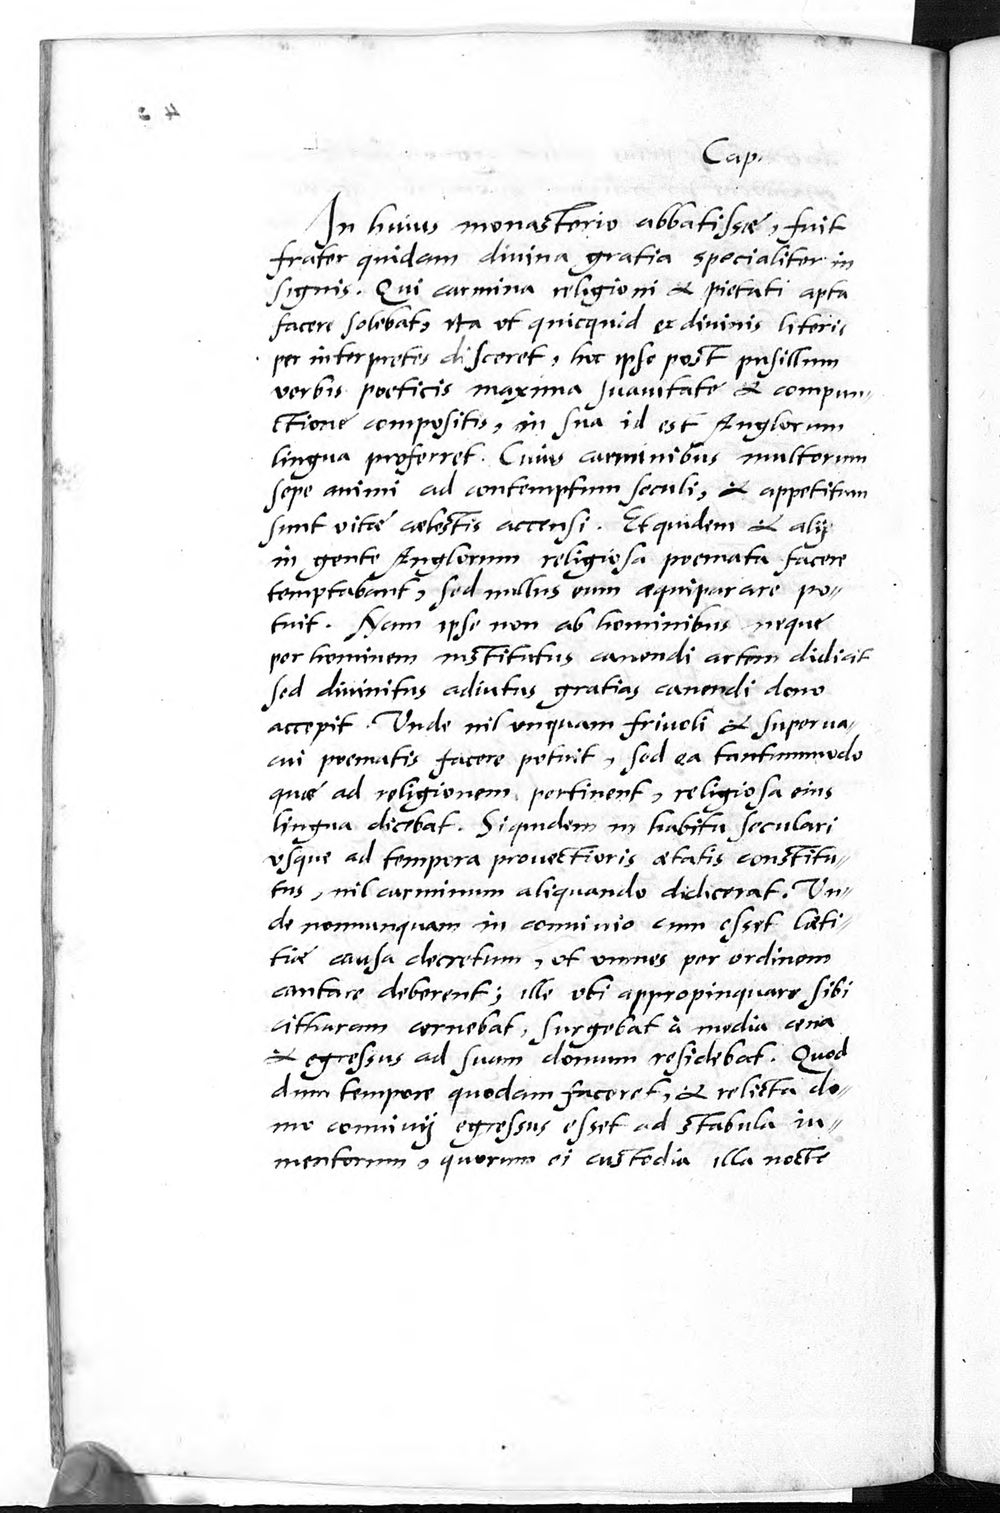 Cap.
In huius monasterio abbatissæ, fuit
frater quidam divina gratia specialiter in
signis. Qui carmina religioni & pietati apta
facere solebat, ita ut quicquid ex divinis literis
per interpretes disceret, hoc ipse post pusillum
verbis poeticis maxima suavitate & compun„
ctione compositis, in sua id est Anglorum
lingua proferret. Cuius carminibus multorum
sepe animi ad contemptum seculi, & appetitum
sunt vitæ cælestis accensi. Et quidem & alij
in gente Anglorum religiosa poemata facere
temptabant, sed nullus eum æquiparare po„
tuit. Nam ipse non ab hominibus neque
per hominem institutus canendi artem didicit
sed divinitus adiutus gratias canendi dono
accepit. Unde nil unquam frivoli & superva„
cui poematis facere potuit, sed ea tantummodo
quæ ad religionem pertinent, religiosa eius
lingua dicebat. Siquidem in habitu seculari
usque ad tempora provectioris ætatis constitu„
tus, nil carminum aliquando didicerat. Un„
de nonnunquam in convivio cum esset læti„
tiæ causa decretum, ut omnes per ordinem
cantare deberent; ille ubi appropinquare sibi
citharam cernebat, surgebat à media cæna
& egressus ad suam domum residebat. Quod
dum tempore quodam faceret, & relicta do„
mo convivij egressus esset ad stabula iu„
mentorum, quorum ei custodia illa nocte